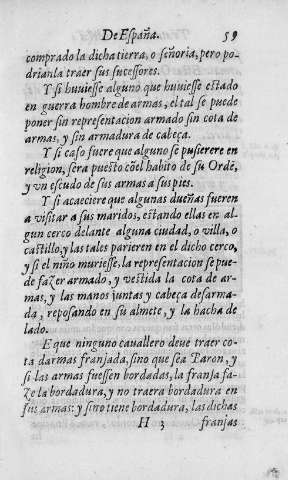 De España. 59
comprado la dicha tierra, o señoria, pero po-
drianla traer sus sucessores.
Y si huviesse alguno que huviesse estado
en guerra hombre de armas, el tal se puede
poner sin representacion armado sin cota de
armas, y sin armadura de cabeça.
Y si caso fuere que alguno se pusierere en
religion, sera puesto cõel habito de su Ordẽ,
y un escudo de sus armas a sus pies.
Y si acaeciere que algunas dueñas fueren
a visitar a sus maridos, estando ellas en al-
gun cerco delante alguna ciudad, o villa, o
castillo, y las tales parieren en el dicho cerco,
y si el niño muriesse, la representacion se pue-
de fazer armado, y vestida la cota de ar-
mas, y las manos juntas y cabeça desarma-
da, reposando en su almete, y la hacha de
lado.
E que ninguno cavallero deve traer co-
ta darmas franjada, sino que sea Baron, y
si las armas fuessen bordadas, la franja fa-
ze la bordadura, y no traera bordadura en
sus armas: y si no tiene bordadura, las dichas
H 3 franjas